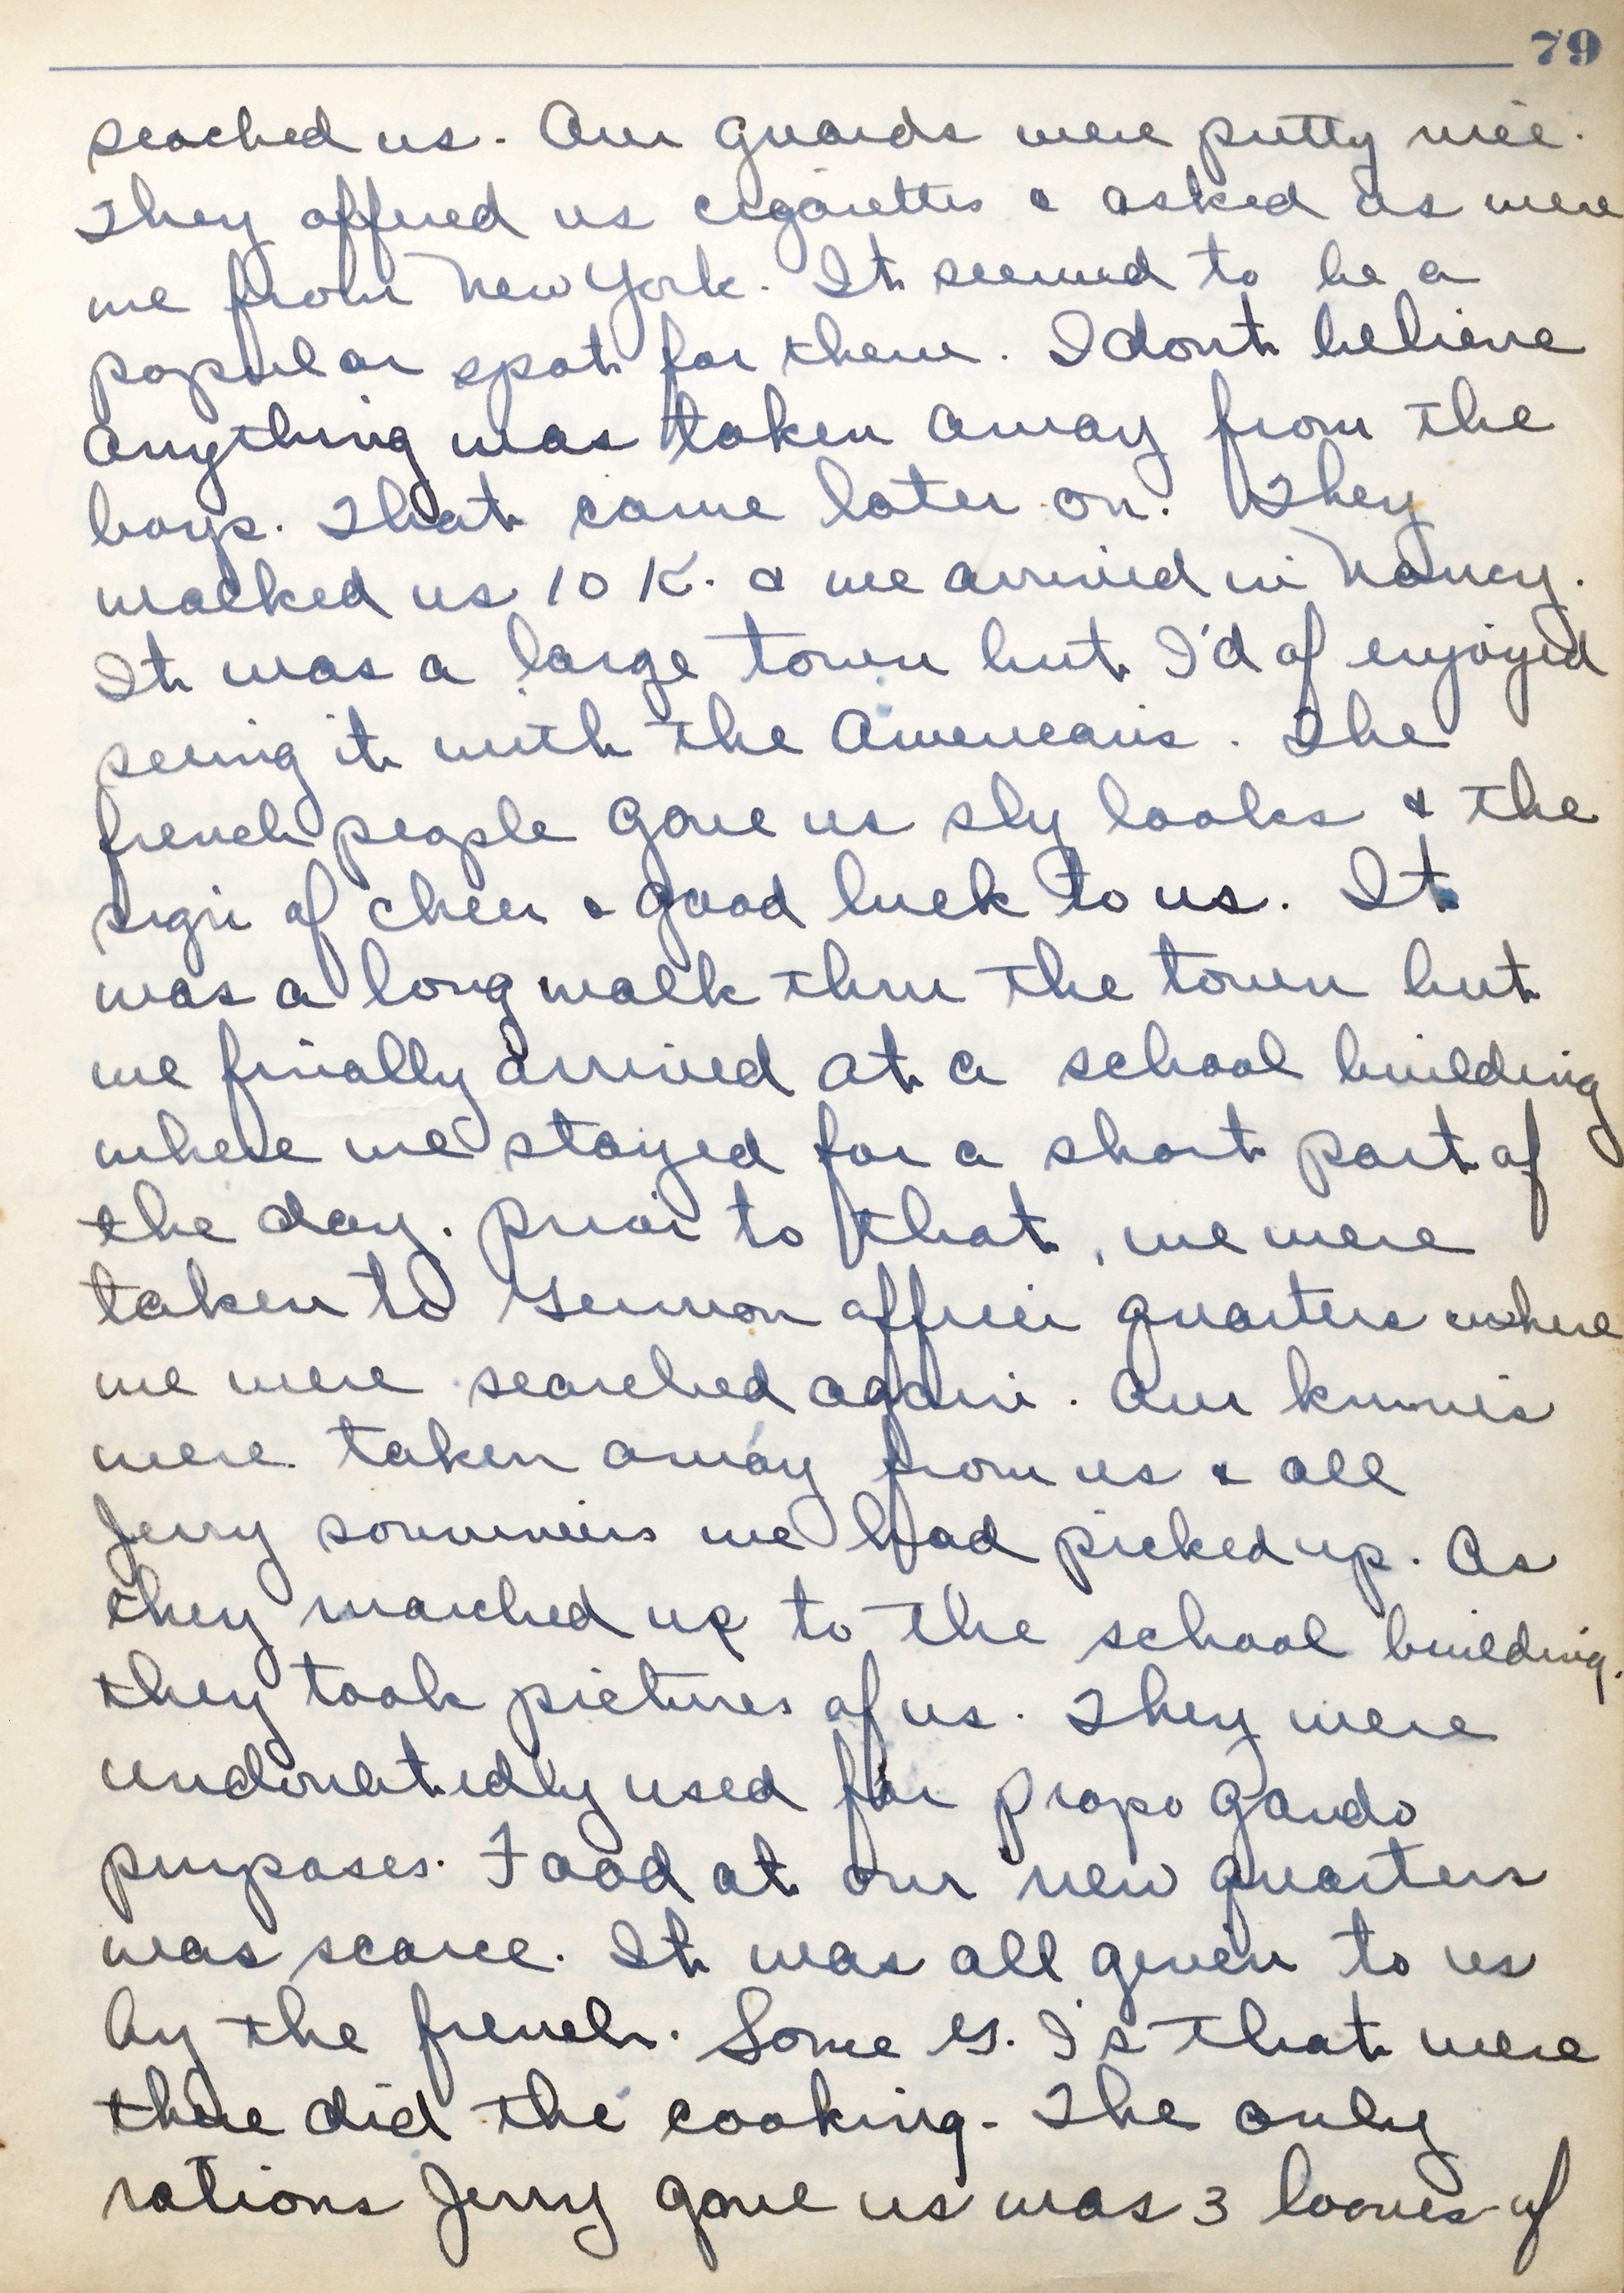 79
seached us. Our guards were pretty nice.
They offered us cigarettes & asked us were
we from New York. It seemed to be a
popular spot for them. I dont believe
anything was taken away from the
boys. That came later on. They
walked us 10 K. & we arrived in Nancy.
It was a large town but I'd of enjoyed
seeing it with the Americans. The
french people gave us sly looks & the
sign of cheer & good luck to us. It
was a long walk thru the town but
we finally arrived at a school building
where we stayed for a short part of
the day. prior to that, we were
taken to German officer quarters where
we were searched again. Our knives
were taken away from us & all
Jerry souvniers we had picked up. As
they marched us to the school building.
they took pictures of us. They were
undoubtedly used for propoganda
purposes. Food at our new quarters
was scarce. It was all given to us
by the french. Some G. I's that were
there did the cooking. The only
rations Jerry gave us was 3 loaves of